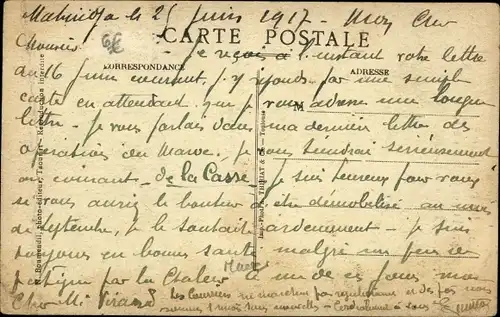 le 25 Juin 1917 - Mon Cher
Maurice
6€
CARTE POSTALE
Je reçois à l'instant votre lettre
CORRESPONDANCE
ADRESSE
du 16 Juin courant, j'y réponds par une simple
carte en attendant que je vous adresse une longue
M
lettre. Je vous parlais dans ma dernière lettre des
opérations du Maroc. Je vous tiendrai sérieusement
au courant - de la Casse. Je suis heureux pour vous
si vous auriez le bonheur d'être démobilisé au mois
de Septembre, je le souhaite ardemment - je suis
toujours en bonne santé malgré un peu de
fatigue par la Chaleur
Maroc
un de ces jours mon
Cher Mr
Les Courriers ne marchent pas régulièrement et des fois nous
sommes 1 mois sans nouvelles - Cordialement à vous
Boumendil, photo-éditeur, Taourirt - Reproduction interdite